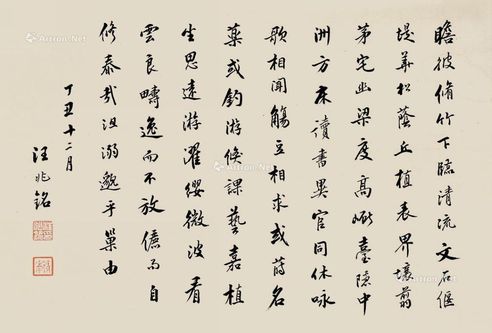 瞻彼脩竹下臨清流文石偃
堤華松蔭丘植表界壤翦
茅宅幽梁度高嶔臺隱中
洲方床讀書異官同休咏
歌相聞觴豆相求或蒔名
藥或釣游倏課藝嘉植
坐思遠游濯纓微波看
雲良疇逸而不放儉而自
修泰哉沮溺邈乎巢由
丁丑十二月
汪兆銘